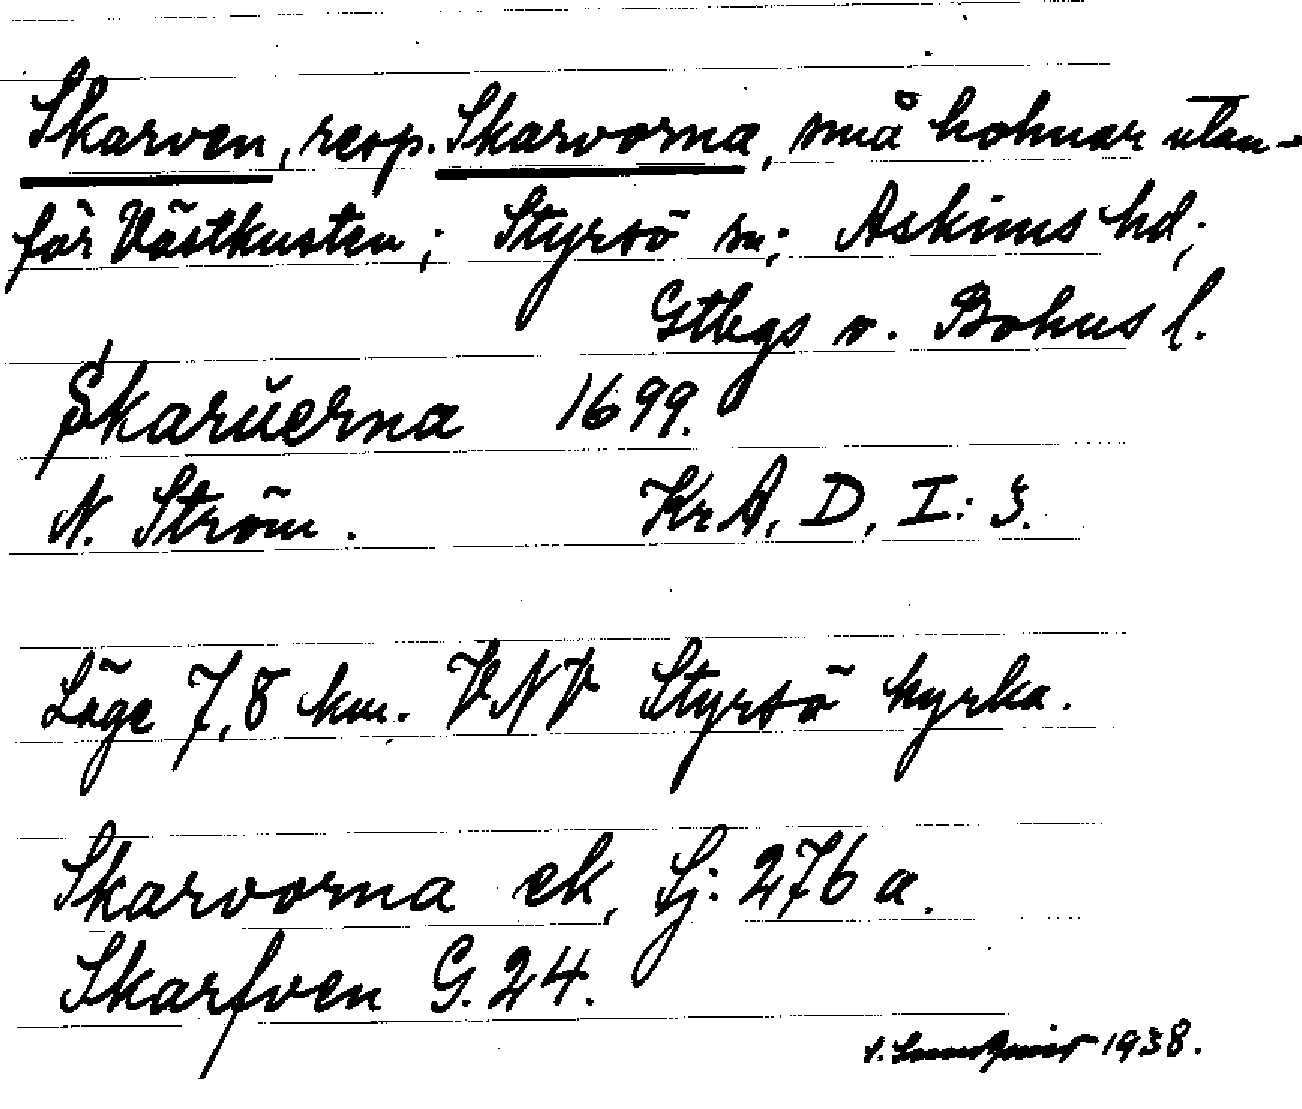 Skarven, resp. Skarvorna, små holmar utan-
för Västkusten; Styrsö sn; Askims hd;
Gtbgs o. Bohus l.
Skarŭerna 1699.
N. Ström. KrA, D, I: 3.
Läge 7,8 km. VNV Styrsö kyrka.
Skarvorna ek, Sj: 276 a.
Skarfven G. 24.
1938.